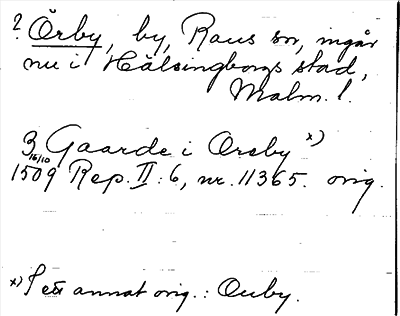 ? Örby, by, Raus sn, ingår
nu i Hälsingborgs stad,
Malm. l.
3 Gaarde i Oreby x)
16/10
1509 Rep. II: 6, nr. 11365. orig.
x) I ett annat orig.: Ouby.